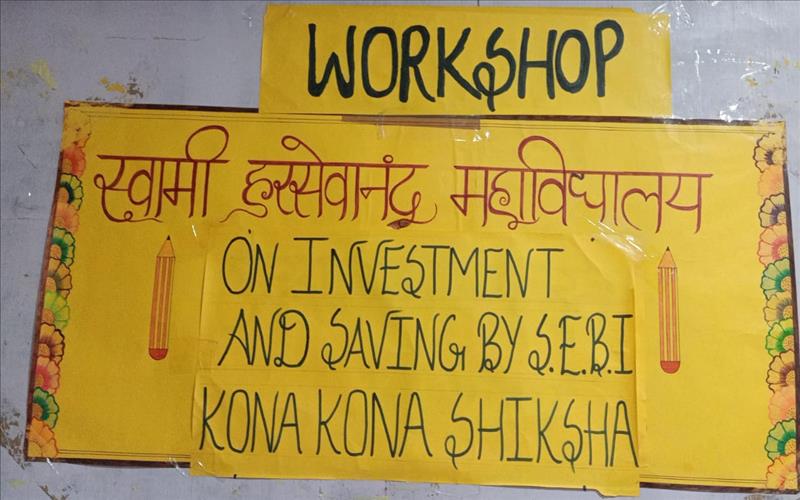 WORKSHOP
स्वामी हरसेवानंद महाविद्यालय
ON INVESTMENT
AND SAVING BY S.E.B.I
KONA KONA SHIKSHA